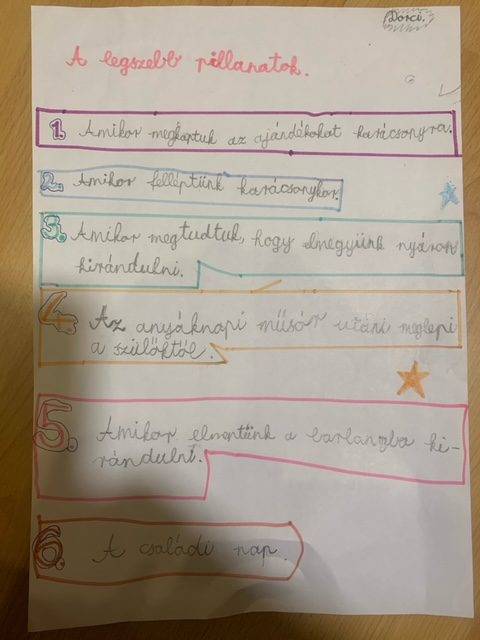 Dorci.
A legszebb pillanatok.
1. Amikor megkaptuk az ajándékokat karácsonyra.
2. Amikor felléptünk karácsonykor.
3. Amikor megtudtuk, hogy elmegyünk nyáron
kirándulni.
4. Az anyáknapi műsor utáni meglepi
a szülőktől.
5. Amikor elmentünk a barlangba ki-
rándulni.
6. A családi nap.